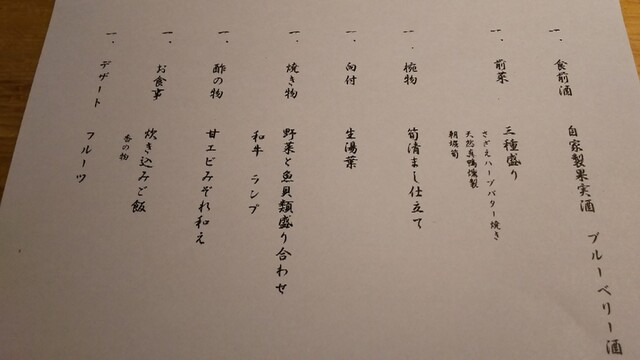 一、食前酒 自家製果実酒 ブルーベリー酒
一、前菜 三種盛り
さざえハーブバター焼き
天然真鴨燻製
朝堀筍
一、椀物 筍清まし仕立て
一、向付 生湯葉
一、焼き物 野菜と魚貝類盛り合わせ
和牛 ランプ
一、酢の物 甘エビみぞれ和え
一、お食事 炊き込みご飯
香の物
一、デザート フルーツ